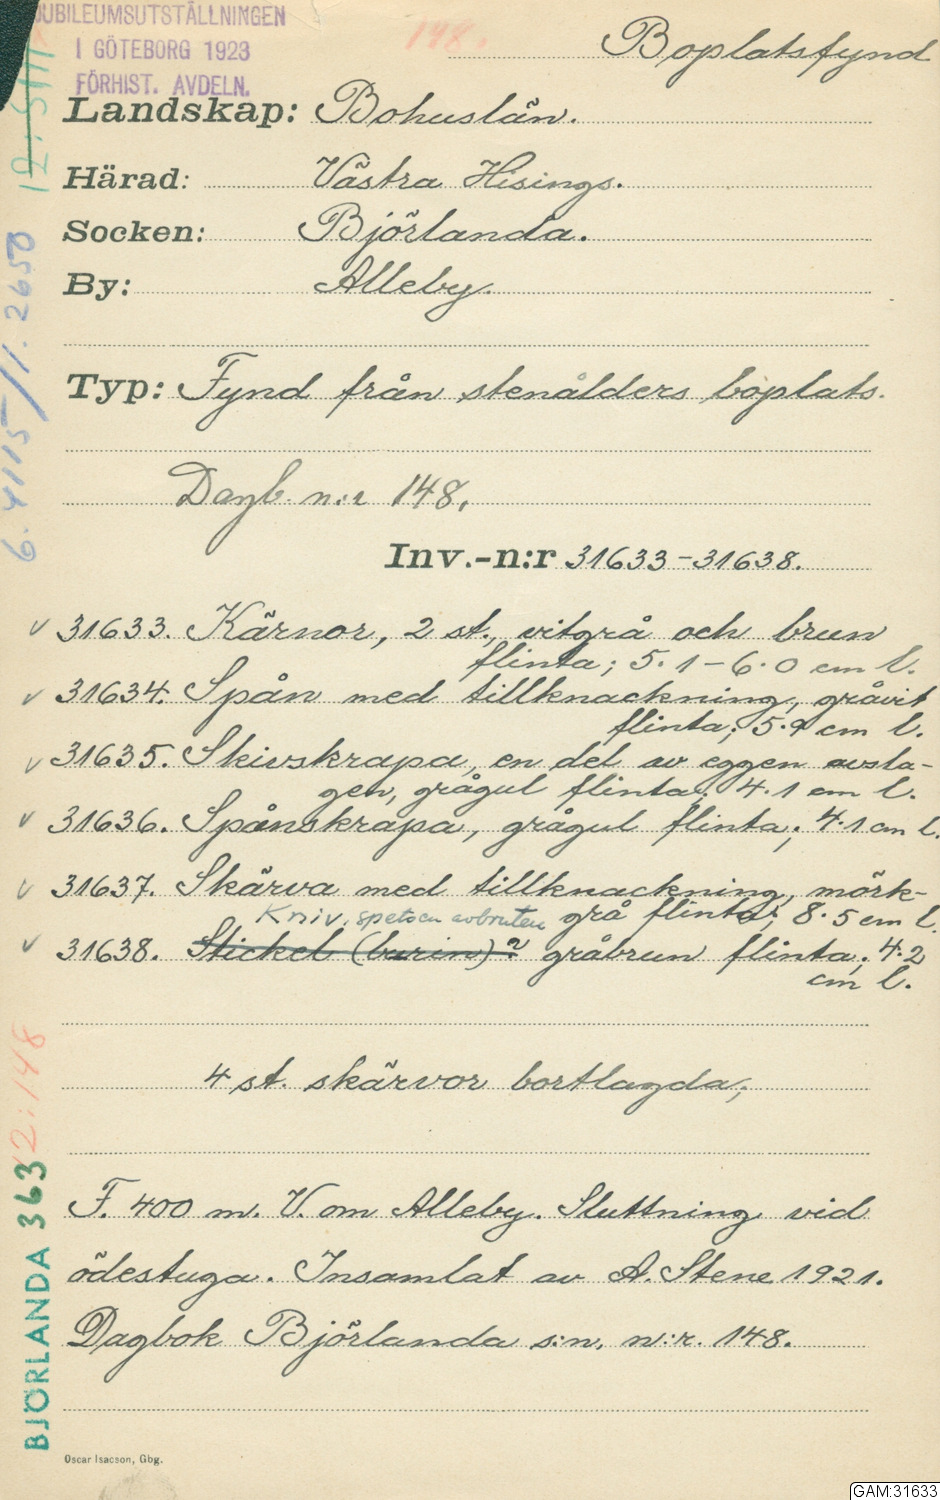 JUBILEUMSUTSTÄLLNINGEN
I GÖTEBORG 1923
FÖRHIST. AVDELN.
148.
Boplatsfynd
Landskap: Bohuslän.
Härad: Västra Hisings.
Socken: Björlanda.
By: Alleby.
Typ: Fynd från stenålders boplats.
Dagb. n:r 148.
Inv.-n:r 31633-31638.
v 31633. Kärnor, 2 st., vitgrå och brun
flinta; 5.1-6.0 cm l.
v 31634. Spån med tillknackning, gråvit
flinta; 5.9 cm l.
v 31635. Skivskrapa, en del av eggen avsla-
gen, grågul flinta; 4.1 cm l.
v 31636. Spånskrapa, grågul flinta; 4.1 cm l.
v 31637. Skärva med tillknackning, mörk-
grå flinta; 8.5 cm l.
Kniv, spetsen avbruten
v 31638. Stickel (burin)? gråbrun flinta; 4.2
cm l.
4 st. skärvor bortlagda;
F. 400 m. V. om Alleby. Sluttning vid
ödestuga. Insamlat av A. Stene 1921.
Dagbok Björlanda s:n, n:r. 148.
Oscar Isacson, Gbg.
6.4115/1.2650
12:148
BJÖRLANDA 363
GAM:31633